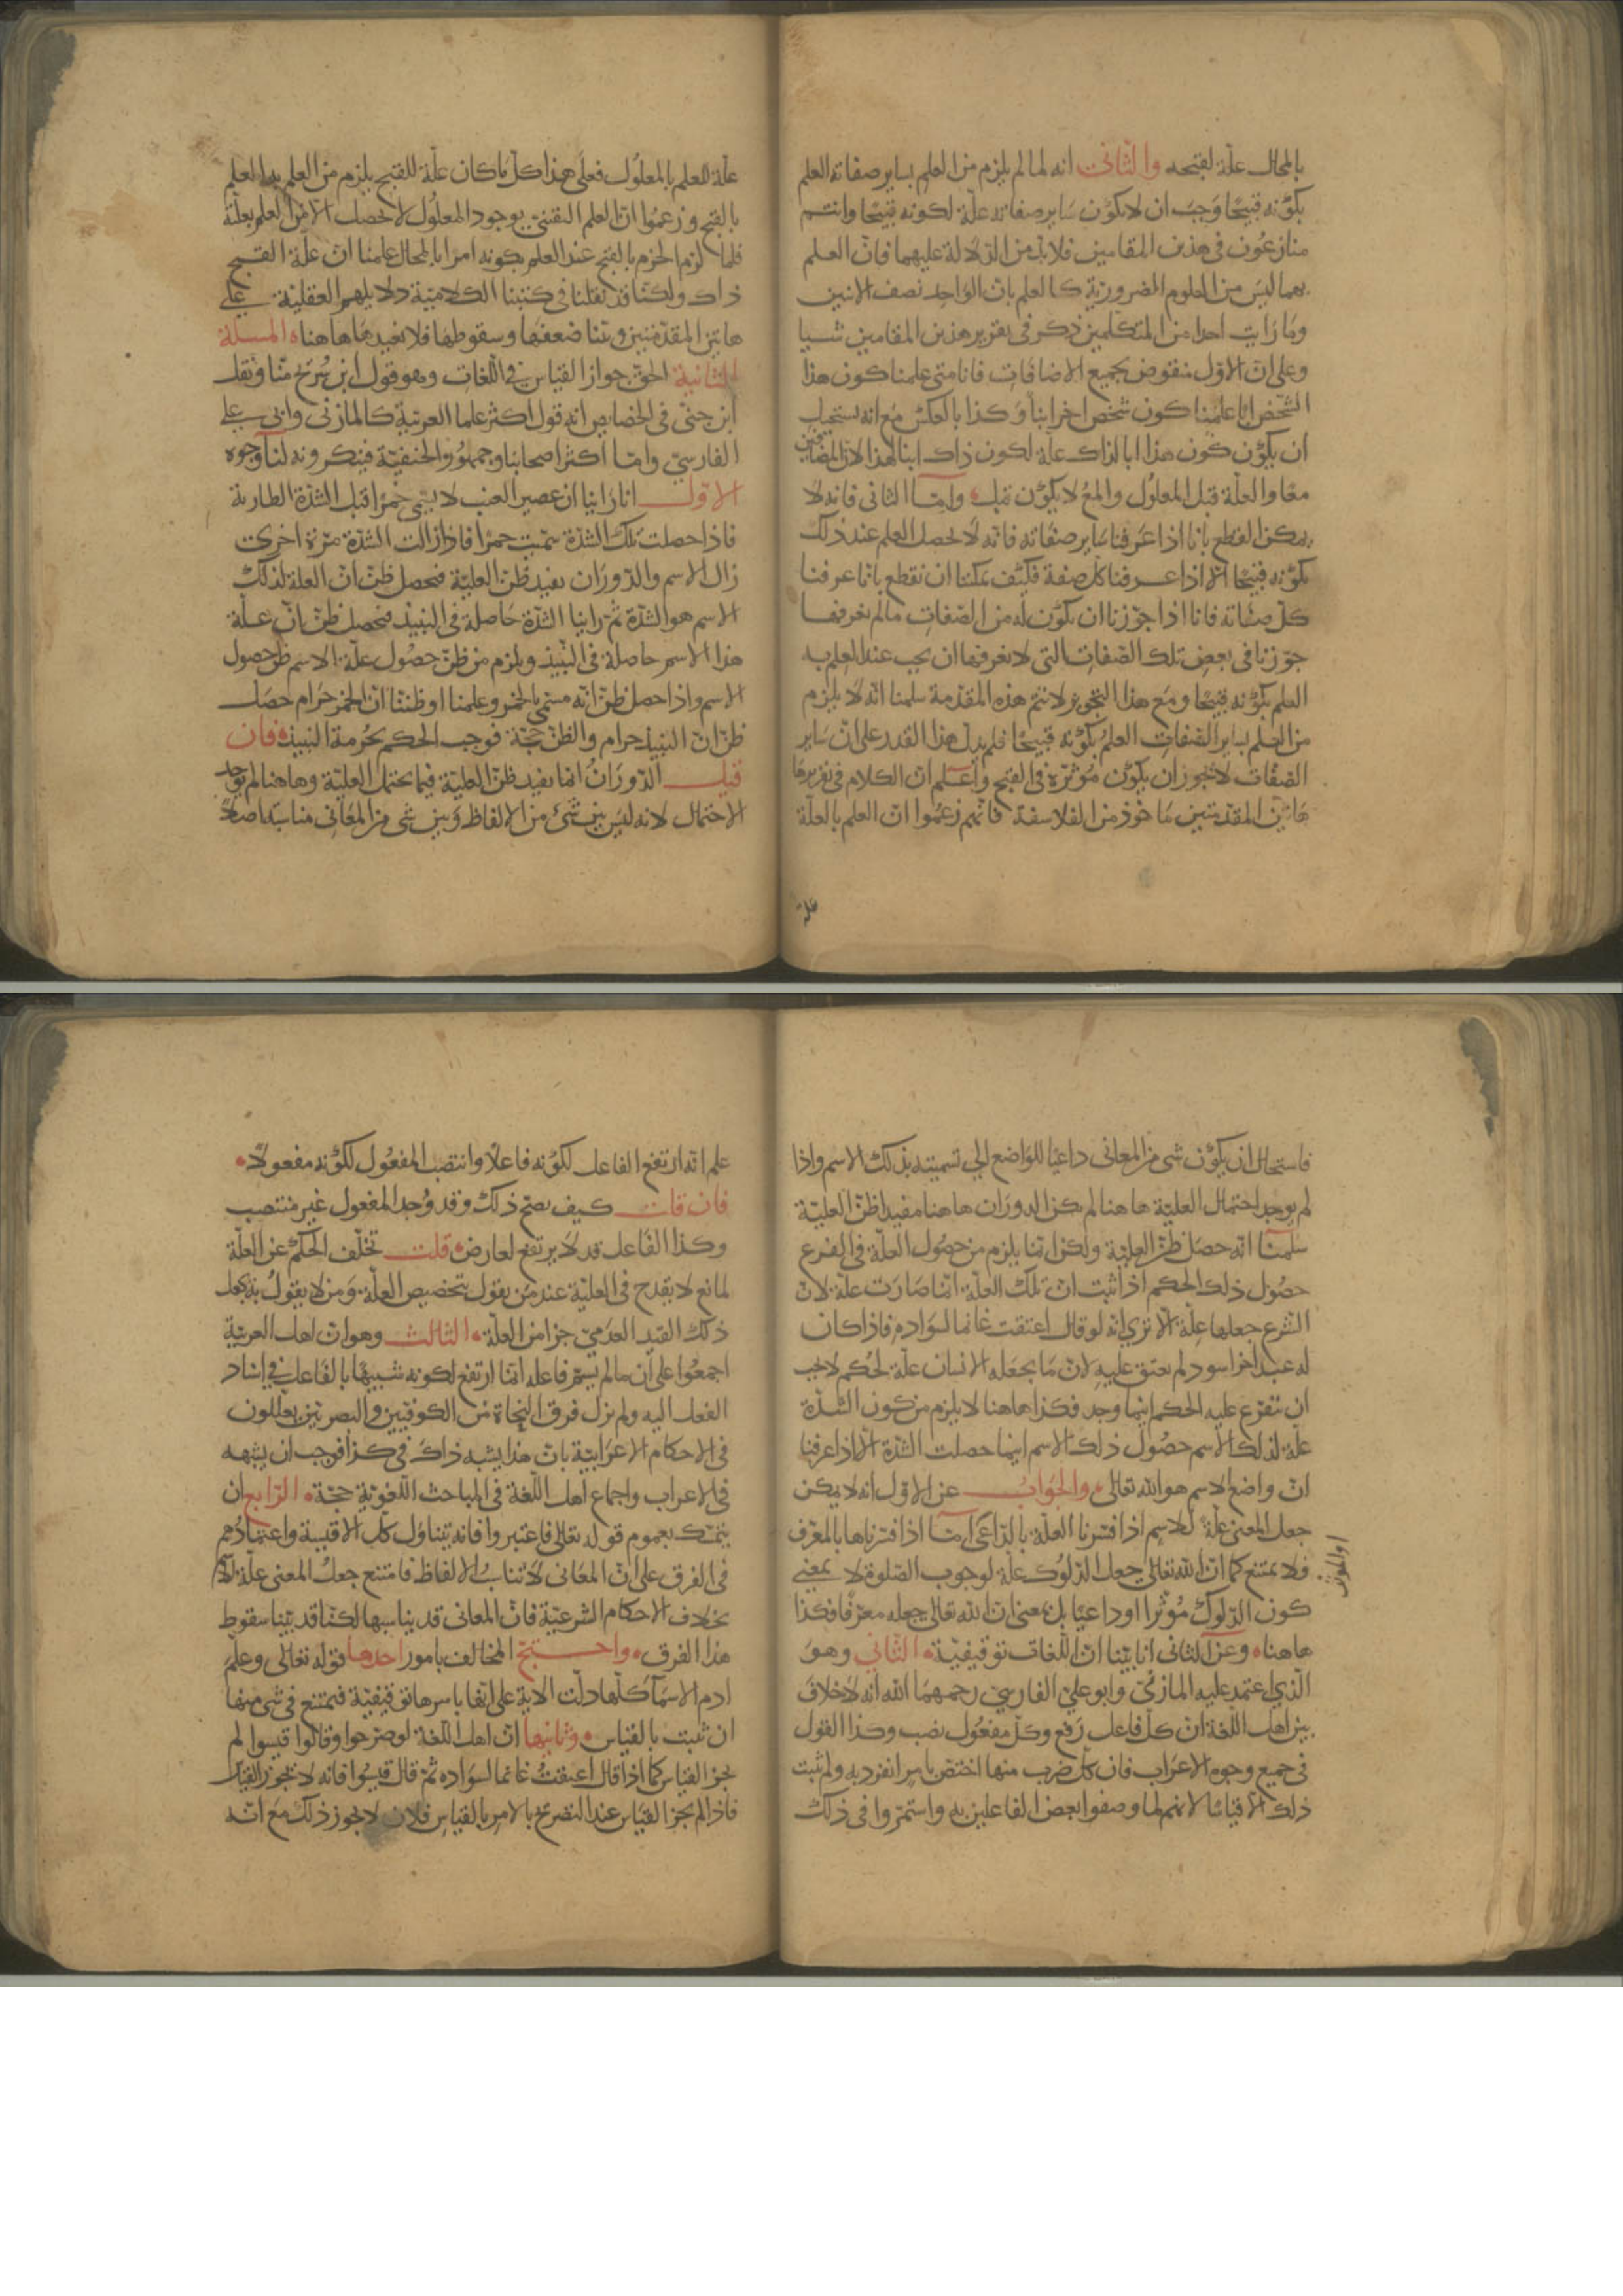 بالمحال علة لقبحه والثاني انه لما لم يلزم من العلم بساير صفاته العلم
بكونه قبيحا وجب ان لا يكون ساير صفاته علة لكونه قبيحا وانتم
منازعون في هذين المقامين فلا بد من الدلالة عليهما فان العلم
بهما ليس من العلوم الضرورية كالعلم بان الواحد نصف الاثنين
وما رايت احدا من المتكلمين ذكر في تقرير هذين المقامين شيا
وعلى ان الاول منقوض بجميع الاضافات فانا متى علمنا كون هذا
الشخص ابا علمنا كون شخص اخر ابنا وكذا بالعكس مع انه يستحيل
ان يكون كون هذا ابا لذاك علة لكون ذاك ابنا لهذا لان المضافين
معا والعلة قبل المعلول والمع لا يكون قبل واما الثاني فانه لا
يمكن القطع بانا اذا عرفنا ساير صفاته فانه لا يحصل العلم عند ذلك
بكونه قبيحا الا اذا عرفنا كل صفة فكيف يمكننا ان نقطع بانا عرفنا
كل صفاته فانا اذا جوزنا ان يكون له من الصفات ما لم نعرفها
جوزنا في بعض تلك الصفات التي لا نعرفها ان يجب عند العلم به
العلم بكونه قبيحا ومع هذا التجويز لا تتم هذه المقدمة سلمنا انه لا يلزم
من العلم بساير الصفات العلم بكونه قبيحا فلم يدل هذا القدر على ان ساير
الصفات لا يجوز ان يكون مؤثرة في القبح واعلم ان الكلام في تقرير ها
هاتين المقدمتين ماخوذ من الفلاسفة فانهم زعموا ان العلم بالعلة
علة
علة للعلم بالمعلول فعلى هذا كل ما كان علة للقبح يلزم من العلم به العلم
بالقبح وزعموا ان العلم اليقيني بوجود المعلول لا يحصل الا من العلم بعلته
فلما لزم الجزم بالقبح عند العلم بكونه امرا بالمحال علمنا ان علة القبح
ذاك ولكنا قد نقلنا في كتبنا الكلامية دلايلهم العقلية على
هاتين المقدمتين وبينا ضعفها وسقوطها فلا نعيدها هاهنا المسلة
الثانية الحق جواز القياس في اللغات وهو قول ابن سريج منا ونقل
ابن جني في الخصايص انه قول اكثر علما العربية كالمازني وابي علي
الفارسي واما اكثر اصحابنا وجمهور الحنفية فينكرونه لنا وجوه
الاول انا راينا ان عصير العنب لا يسمى خمرا قبل الشدة الطارية
فاذا حصلت تلك الشدة سميت خمرا فاذا زالت الشدة مرة اخرى
زال الاسم والدوران يفيد ظن العلية فيحصل ظن ان العلة لذلك
الاسم هو الشدة ثم راينا الشدة حاصلة في النبيذ فيحصل ظن ان علة
هذا الاسم حاصلة في النبيذ ويلزم من ظن حصول علة الاسم ظن حصول
الاسم واذا حصل ظن انه مسمى بالخمر وعلمنا او ظننا ان الخمر حرام حصل
ظن ان النبيذ حرام والظن حجة فوجب الحكم بحرمة النبيذ فان
قيل الدوران انما يفيد ظن العلية فيما يحتمل العلية وهاهنا لم يوجد
الاحتمال لانه ليس بين شي من الالفاظ وبين شي من المعاني مناسبة اصلا
فاستحال ان يكون شي من المعاني داعيا للواضع الى تسميته بذلك الاسم واذا
لم يوجد احتمال العلية هاهنا لم يكن الدوران هاهنا مفيدا ظن العلية
سلمنا انه حصل ظن العلية ولكن انما يلزم من حصول العلة في الفرع
حصول ذلك الحكم اذا ثبت ان تلك العلة انما صارت علة لان
الشرع جعلها علة الا ترى انه لو قال اعتقت غانما لسواده فاذا كان
له عبد اخر اسود لم يعتق عليه لان ما يجعله الانسان علة لحكم لا يجب
ان يتفرع عليه الحكم اينما وجد فكذا هاهنا لا يلزم من كون الشدة
علة لذلك الاسم حصول ذلك الاسم اينما حصلت الشدة الا اذا عرفنا
ان واضع الاسم هو الله تعالى والجواب عن الاول انه لا يمكن
جعل المعنى علة للاسم اذا فسرنا العلة بالداعي اما اذا فسرناها بالمعرف
او المؤثر
فلا يمتنع كما ان الله تعالى جعل الدلوك علة لوجوب الصلوة لا بمعنى
كون الدلوك مؤثرا او داعيا بل بمعنى ان الله تعالى جعله معرفا فكذا
هاهنا وعن الثاني انا بينا ان اللغات توقيفية الثاني وهو
الذي اعتمد عليه المازني وابو علي الفارسي رحمهما الله انه لا خلاف
بين اهل اللغة ان كل فاعل رفع وكل مفعول نصب وكذا القول
في جميع وجوه الاعراب فان كل ضرب منها اختص بامر انفرد به ولم يثبت
ذلك الا قياسا لانهم لما وصفوا بعض الفاعلين به واستمروا في ذلك
علم انه ارتفع الفاعل لكونه فاعلا وانتصب المفعول لكونه مفعولا
فان قلت كيف يصح ذلك وقد وجد المفعول غير منتصب
وكذا الفاعل قد لا يرتفع لعارض قلت تخلف الحكم عن العلة
لمانع لا يقدح في العلية عند من يقول بتخصيص العلة ومن لا يقول به يجعل
ذلك القيد العدمي جزا من العلة الثالث وهو ان اهل العربية
اجمعوا على ان ما لم يسم فاعله انما ارتفع لكونه شبيها بالفاعل في اسناد
الفعل اليه ولم يزل فرق النحاة من الكوفيين والبصريين يعللون
في الاحكام الاعرابية بان هذا يشبه ذاك في كذا فوجب ان يشبهه
في الاعراب واجماع اهل اللغة في المباحث اللغوية حجة الرابع ان
يتمسك بعموم قوله تعالى فاعتبروا فانه يتناول كل الاقيسة واعتمادهم
في الفرق على ان المعاني لا تناسب الالفاظ فامتنع جعل المعنى علة للاسم
بخلاف الاحكام الشرعية فان المعاني قد يناسبها لكنا قد بينا سقوط
هذا الفرق واحتج المخالف بامور احدها قوله تعالى وعلم
ادم الاسما كلها دلت الاية على انها باسرها توقيفية فيمتنع في شي منها
ان يثبت بالقياس وثانيها ان اهل اللغة لو صرحوا وقالوا قيسوا لم
يجز القياس كما اذا قال اعتقت غانما لسواده ثم قال قيسوا فانه لا يجوز القياس
فاذا لم يجز القياس عند التصريح بالامر بالقياس فلان لا يجوز ذلك مع انه